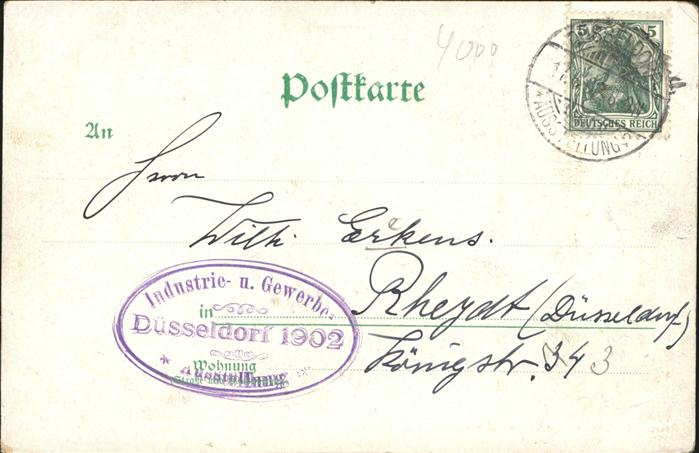 4000
5 5
DEUTSCHES REICH
DÜSSELDORF
AUSSTELLUNG
Postkarte
An
Herrn
Wilh. Erkens.
Rheydt (Düsseldorf)
Königstr. 343
Industrie- u. Gewerbe-
in
Düsseldorf 1902
Ausstellung
Wohnung
(Straße und